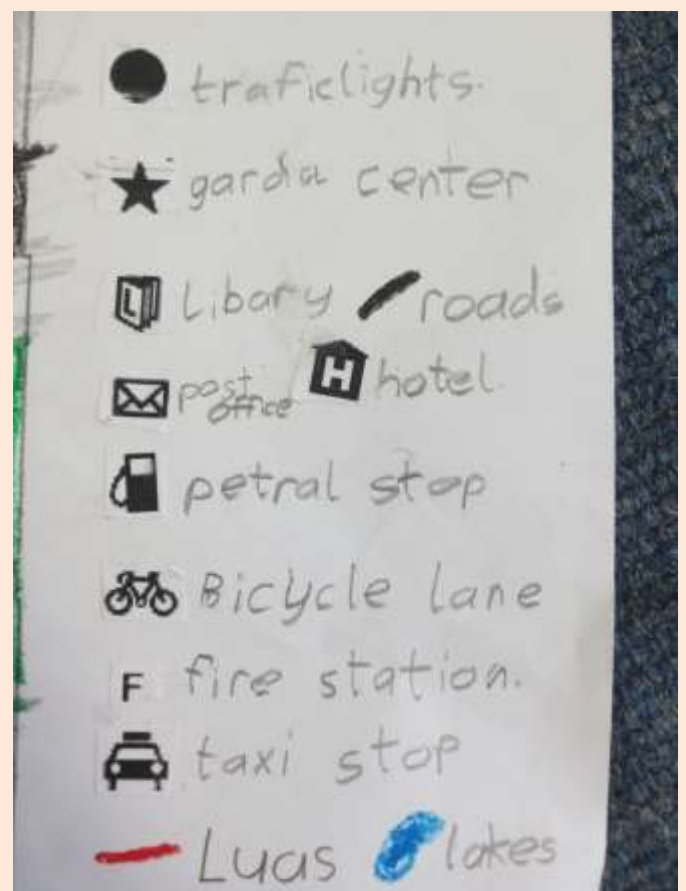 traficlights.
garda center
L Libary roads
post office H hotel.
petral stop
Bicycle lane
F fire station.
taxi stop
Luas lakes